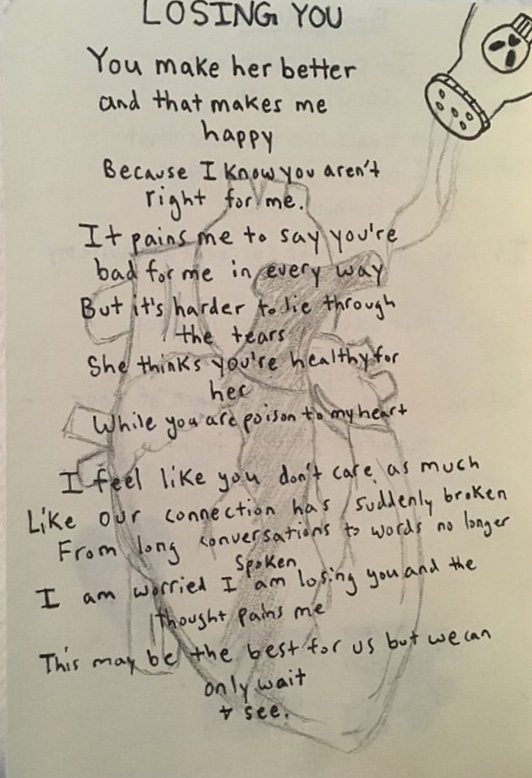 LOSING YOU
You make her better
and that makes me
happy
Because I know you aren't
right for me.
It pains me to say you're
bad for me in every way
But it's harder to lie through
the tears
She thinks you're healthy for
her
While you are poison to my heart
I feel like you don't care as much
Like our connection has suddenly broken
From long conversations to words no longer
Spoken
I am worried I am losing you and the
thought pains me
This may be the best for us but we can
only wait
+ see.